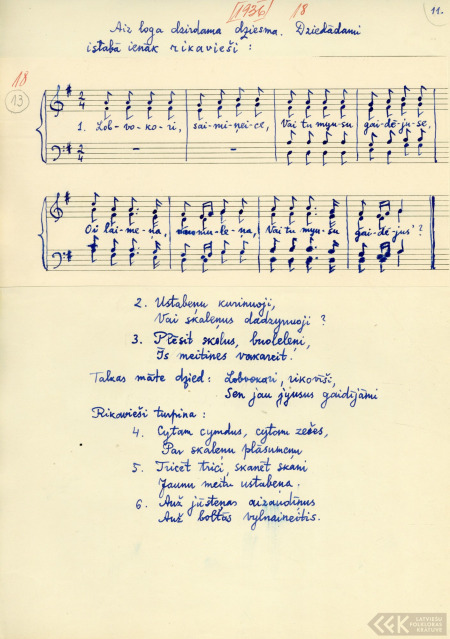 [1936] 18
11.
Aiz loga dzirdama dziesma. Dziedādami
istabā ienāk rikavieši :
18
13
1. Lob-vo-ko-ri, sai-mi-nei-ce, Vai tu myu-su gai-dē-ju-se,
Oi lai-me-ņa, va-ka-re-ņa, Vai tu myu-su gai-dē-jus'?
2. Ustabeņu kurinuoji,
Vai skaleņus dadzynuoji ?
3. Plēsit skolus, buoleleņi,
Īs meitiņes vakareit.
Talkas māte dzied: Lobvokari, rikovīši,
Sen jau jyusus gaidījami
Rikavieši turpina :
4. Cytam cymdus, cytom zeķes,
Par skaleņu plāsumeņu
5. Tricēt trici, skanēt skaņi
Jaunu meitu ustabeņa.
6. Auž jūsteņas aizaudiņus
Auž boltās vylnaineitis.
LATVIEŠU
FOLKLORAS
KRĀTUVE